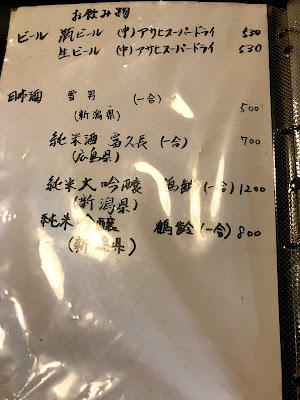 お飲み物
ビール 瓶ビール (中)アサヒスーパードライ 530
生ビール (中)アサヒスーパードライ 530
日本酒 雪男 (一合) 500
(新潟県)
純米酒 富久長 (一合) 700
(広島県)
純米大吟醸 鶴齢(一合) 1200
(新潟県)
純米吟醸 鶴齢(一合) 800
(新潟県)